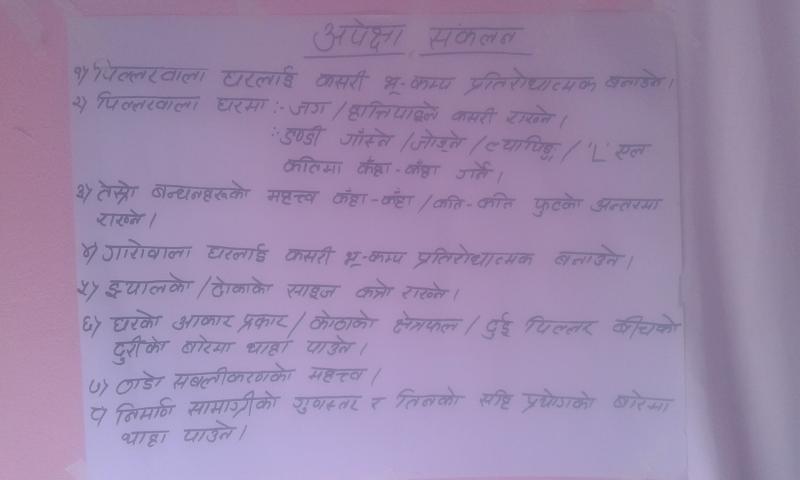 अपेक्षा संकलन
१) पिल्लरवाला घरलाई कसरी भू-कम्प प्रतिरोधात्मक बनाउने।
२) पिल्लरवाला घरमा :- जग / हात्तिपाइले कसरी राख्ने।
:- डण्डी गाँस्ने / जोड्ने / ल्यापिङ्ग / 'L' एल
कतिमा कँहा-कँहा गर्ने।
३) तेस्रो बन्धनहरूको महत्त्व कँहा-कँहा / कति-कति फुटको अन्तरमा
राख्ने।
४) गारोवाला घरलाई कसरी भू-कम्प प्रतिरोधात्मक बनाउने।
५) झ्यालको / ढोकाको साइज कत्रो राख्ने।
६) घरको आकार प्रकार / कोठाको क्षेत्रफल / दुई पिल्लर बीचको
दुरीको बारेमा थाहा पाउने।
७) ठाडो सबलीकरणको महत्त्व।
८) निर्माण सामाग्रीको गुणस्तर र तिनको सहि प्रयोगको बारेमा
थाहा पाउने।